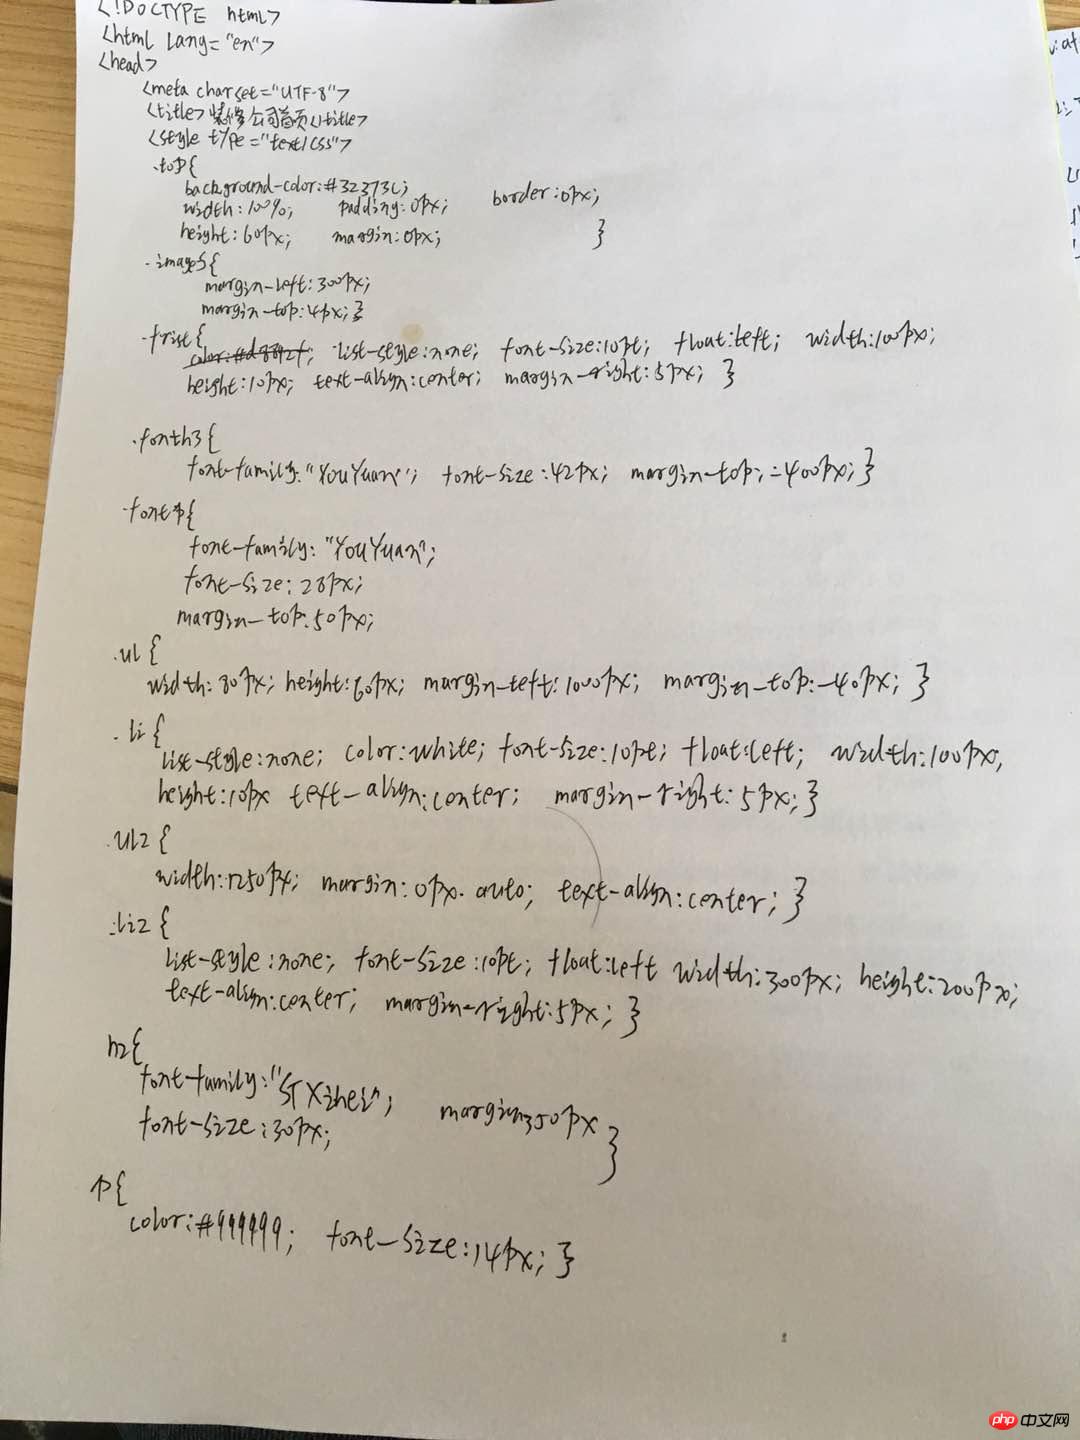 <!DOCTYPE html>
<html lang="en">
<head>
<meta charset="UTF-8">
<title>装修公司首页</title>
<style type="text/css">
.top{
background-color:#32373C;
width:100%; padding:0px; border:0px;
height:60px; margin:0px; }
.images{
margin-left:300px;
margin-top:4px;}
.frist{
list-style:none; font-size:10pt; float:left; width:100px;
height:10px; text-align:center; margin-right:5px; }
.fonth3{
font-family:"YouYuan"; font-size:42px; margin-top:-400px;}
.fontp{
font-family:"YouYuan";
font-size:28px;
margin-top:50px;
.ul{
width:80px; height:60px; margin-left:1000px; margin-top:-40px; }
.li{
list-style:none; color:white; font-size:10pt; float:left; width:100px,
height:10px text-align:center; margin-right:5px;}
.ul2{
width:1250px; margin:0px.auto; text-align:center; }
.li2{
list-style:none; font-size:10pt; float:left width:300px; height:200px;
text-align:center; margin-right:5px; }
h2{
font-family:"STXihei"; 50px
font-size:30px; }
p{
color:#999999; font-size:14px; }
php 中文网